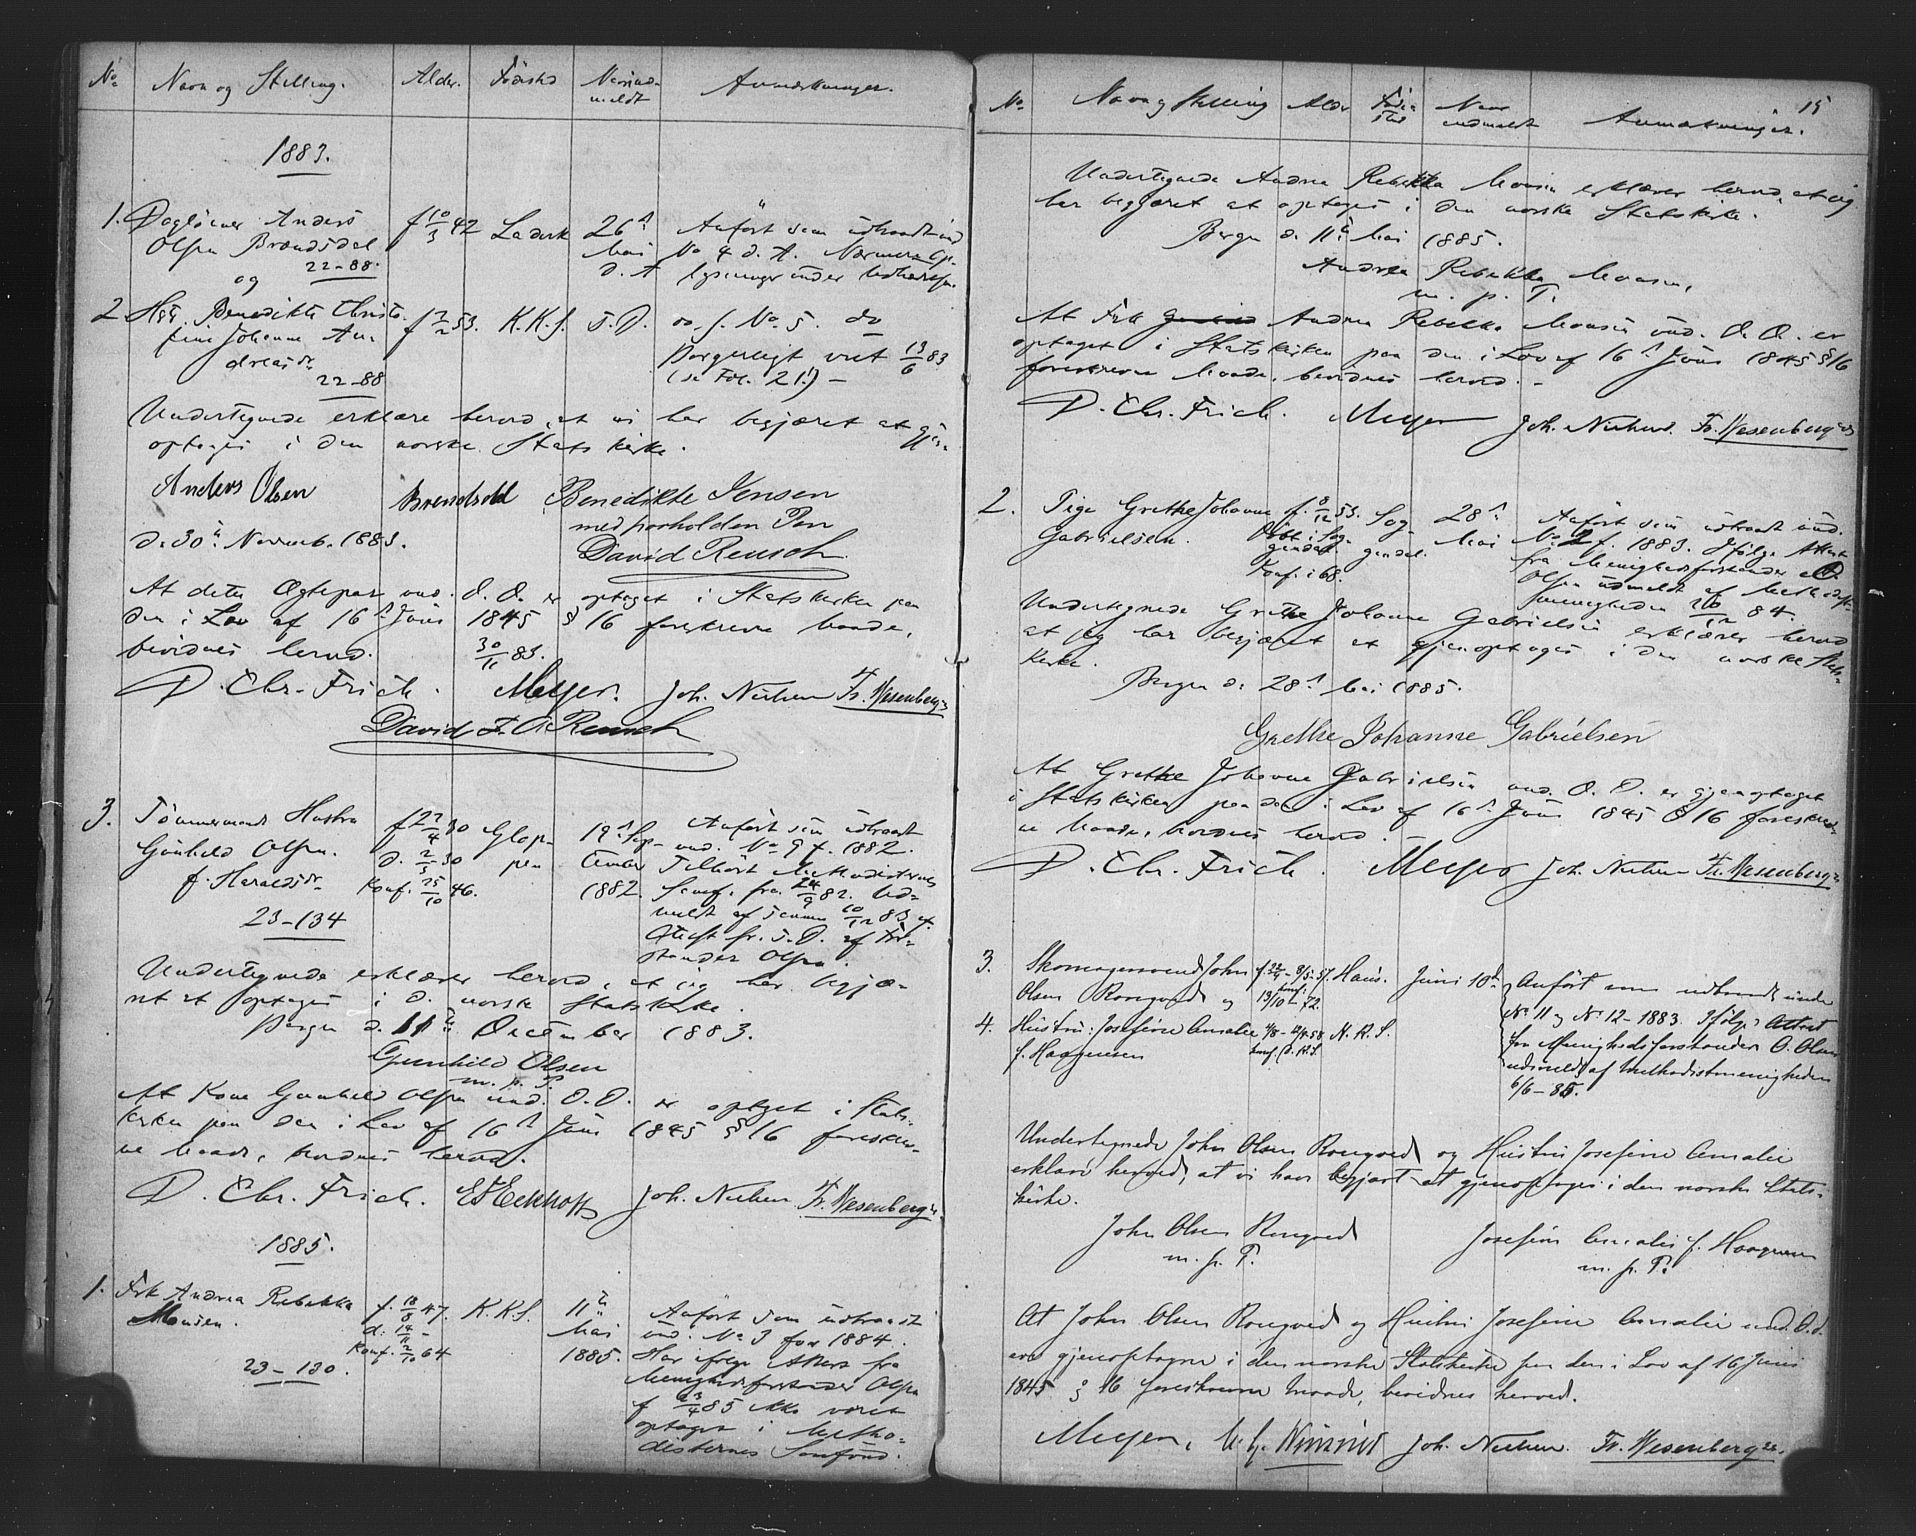 No. Navn og Stilling. Alder. Fødested Naar ind-meldt Anmærkninger.
1883.
1. Dagløner Anders f 10/3 42 Laderk 26de Anført som udtraadt und
Olsen Brendsdal Mai No 4 d. A. Nærmere Op-
22-88. d. A lysninger under Udtrædelsen.
og
2 Hst. Benedikte Christo- f 7/2 53. K.K.S. T.D. do. f. No. 5. do
fine Johanne An- Borgerligt viet 13/6 83
dreasdr (se Fol. 21.) -
22-88
Undertegnede erklære herved, at vi har begjæret at gjen-
optages i den norske Statskirke.
Anders Olsen Brendsdal Benedikte Jensen
med paaholden Pen
d. 30te Novemb. 1883. David Rensch
At dette Ægtepar und. d. D. er optaget i Statskirken paa
den i Lov af 16de Juni 1845 § 16 foreskrevne Maade,
bevidnes herved. 30/11 83.
D. Chr. Frich. Meyer. Joh. Nielsen Fr. Wesenberg
David F. A Rensch
3. Tømmermands Hustru f 27/4 30 Glop- 19de Sep- Anført som udtraadt
Gunhild Olsen. d. 2/5 30 pen tember und. No 9 f. 1882.
f. Haraldsdr Konf. 25/10 46. 1882. Tilhørt Methodisternes
23-134 Samf. fra 24/9 82. Ud-
meldt af samme 10/12 83 if.
Attest fr. s. D. af For-
stander Olsen.
Undertegnede erklærer herved, at jeg har begjæ-
ret at optages i d. norske Statskirke.
Bergen d. 11te December 1883.
Gunhild Olsen
m. p. P.
At Kone Gunhild Olsen und. D. D. er optaget i Stats-
kirken paa den i Lov af 16de Juni 1845 § 16 foreskrev-
ne Maade, bevidnes herved.
D. Chr. Frich. E Eckhoff Joh. Nielsen Fr. Wesenberg
1885.
1. Frk Andrea Rebekka f. 18/8 47. K.K.S. 11te Anført som udtraadt
Monsen. d. 14/11 - Mai und. No 3 for 1884.
Konf. 2/10 64 1885. Har ifølge Attest fra
23-130. Menighedsforstander Olsen
f 23/4 85 ikke været
optaget i Metho-
disternes Samfund.
15
No. Navn og Stilling Alder Føde-sted Naar indmeldt Anmærkninger.
Undertegnede Andrea Rebekka Monsen erklærer herved, at jeg
har begjæret at optages i den norske Statskirke.
Bergen d. 11te Mai 1885.
Andrea Rebekka Monsen,
m. p. P.
At Frk Andrea Rebekka Monsen und. D. D. er
optaget i Statskirken paa den i Lov af 16de Juni 1845 § 16
foreskrevne Maade, bevidnes herved. -
D. Chr. Frich. Meyer Joh. Nielsen. Fr. Wesenberg
2. Pige Grethe Johanne f. 8/12 53. Sog- 28de Anført som udtraadt und.
Gabrielsen. Døbt i Sog- gendal. Mai No. 2 f. 1883. Ifølge Attest
gendal. fra Menighedsforstander
Konf. i 68. Olsen udmeldt af Methodist-
menigheden 26/12 84.
Undertegnede Grethe Johanne Gabrielsen erklærer herved
at jeg har begjæret at gjenoptages i den norske Stats-
kirke.
Bergen d. 28de Mai 1885.
Grethe Johanne Gabrielsen
At Grethe Johanne Gabrielsen und. D. D. er gjenoptaget
i Statskirken paa den i Lov af 16de Juni 1845 § 16 foreskrev-
ne Maade, bevidnes herved. -
D. Chr. Frich. Meyer Joh. Nielsen Fr. Wesenberg
3. Skomagersvend John f. 22/4 - 3/5 - 57. Haus. Juni 10de Anført som udtraadt under
Olsen Rongved og Konf. 13/10 - 72. No 11 og No 12 - 1883. Ifølge Attest
4. Hustru: Josefine Amalie N. K. S. fra Menighedsforstander O. Olsen
f. Haagensen Konf. udmeldt af Methodistmenigheden
6/6 - 85.
Undertegnede John Olsen Rongved og Hustru Josefine Amalie
erklære herved, at vi have begjært at gjenoptages i den norske Stats-
kirke.
John Olsen Rongved Josefine Amalie f. Haagensen
m. p. P. m. p. P.
At John Olsen Rongved og Hustru Josefine Amalie und. D. d.
ere gjenoptagne i den norske Statskirke paa den i Lov af 16 Juni
1845 § 16 foreskrevne Maade, bevidnes herved.
Meyer, Joh. Nielsen. Fr. Wesenberg